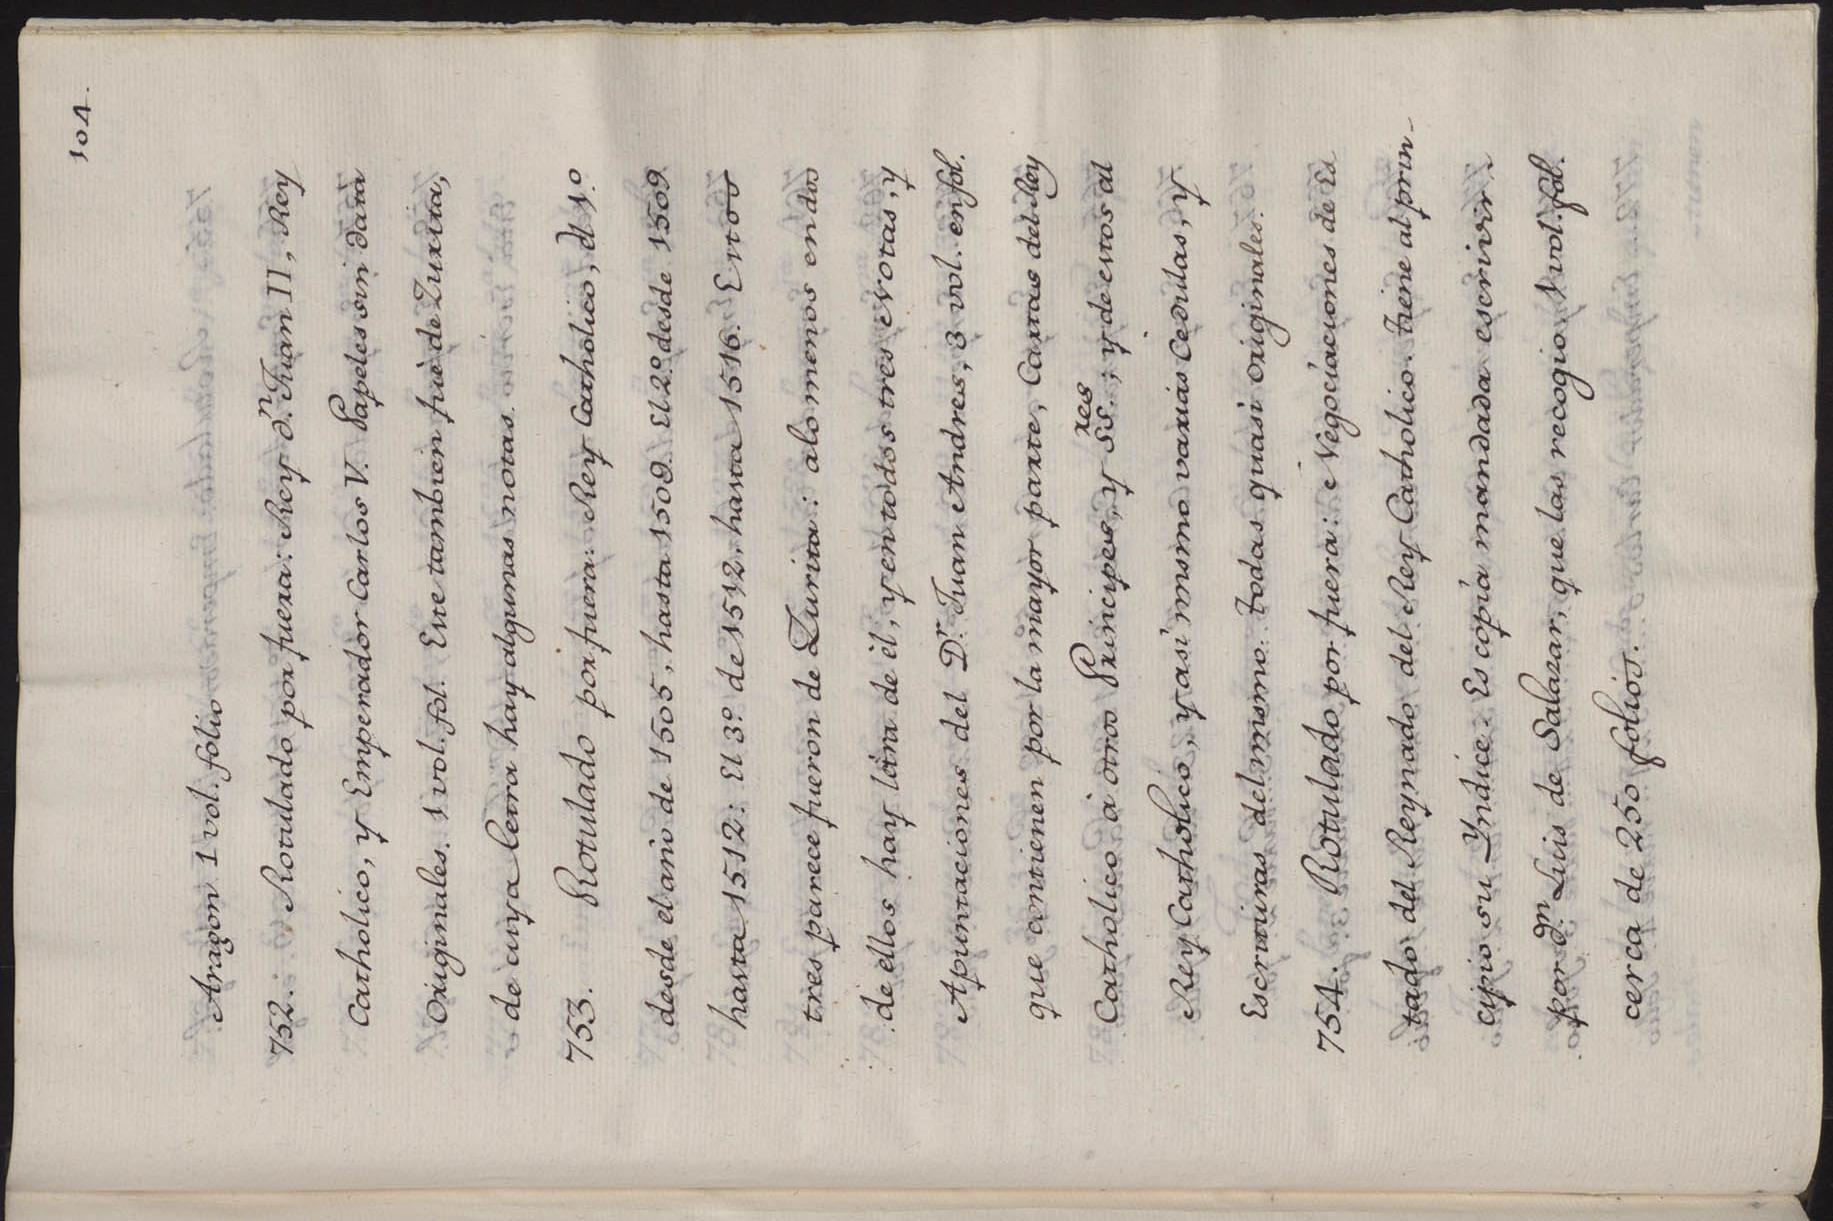 104.
Aragon 1 vol. folio
752. Rotulado por fuera: Rey d.n Juan II, Rey
Catholico, y Emperador Carlos V. Papeles sin data
Originales. 1 vol. fol. Este tambien fuè de Zurita,
de cuya letra hay algunas notas.
753. Rotulado por fuera: Rey Catholico, el 1.º
desde el año de 1505, hasta 1509. El 2.º desde 1509
hasta 1512: El 3.º de 1512, hasta 1516. Estos
tres parece fueron de Zurita: alomenos en dos
de ellos hay letra de èl, y en todos tres Notas, y
Apuntaciones del D.r Juan Andres, 3 vol. en fol.
que contienen por la mayor parte, Cartas del Rey
Catholico à otros Principes, y SS.res; y de estos al
Rey Catholico, y asi mismo varias Cedulas, y
Escrituras del mismo. Todas quasi originales.
754. Rotulado por fuera: Negociaciones de Es
tado del Reynado del Rey Catholico. Tiene al prin-
cipio su Yndice. Es copia mandada escrivir
por d.n Luis de Salazar, que las recogio, 1 vol. fol.
cerca de 250 folios.